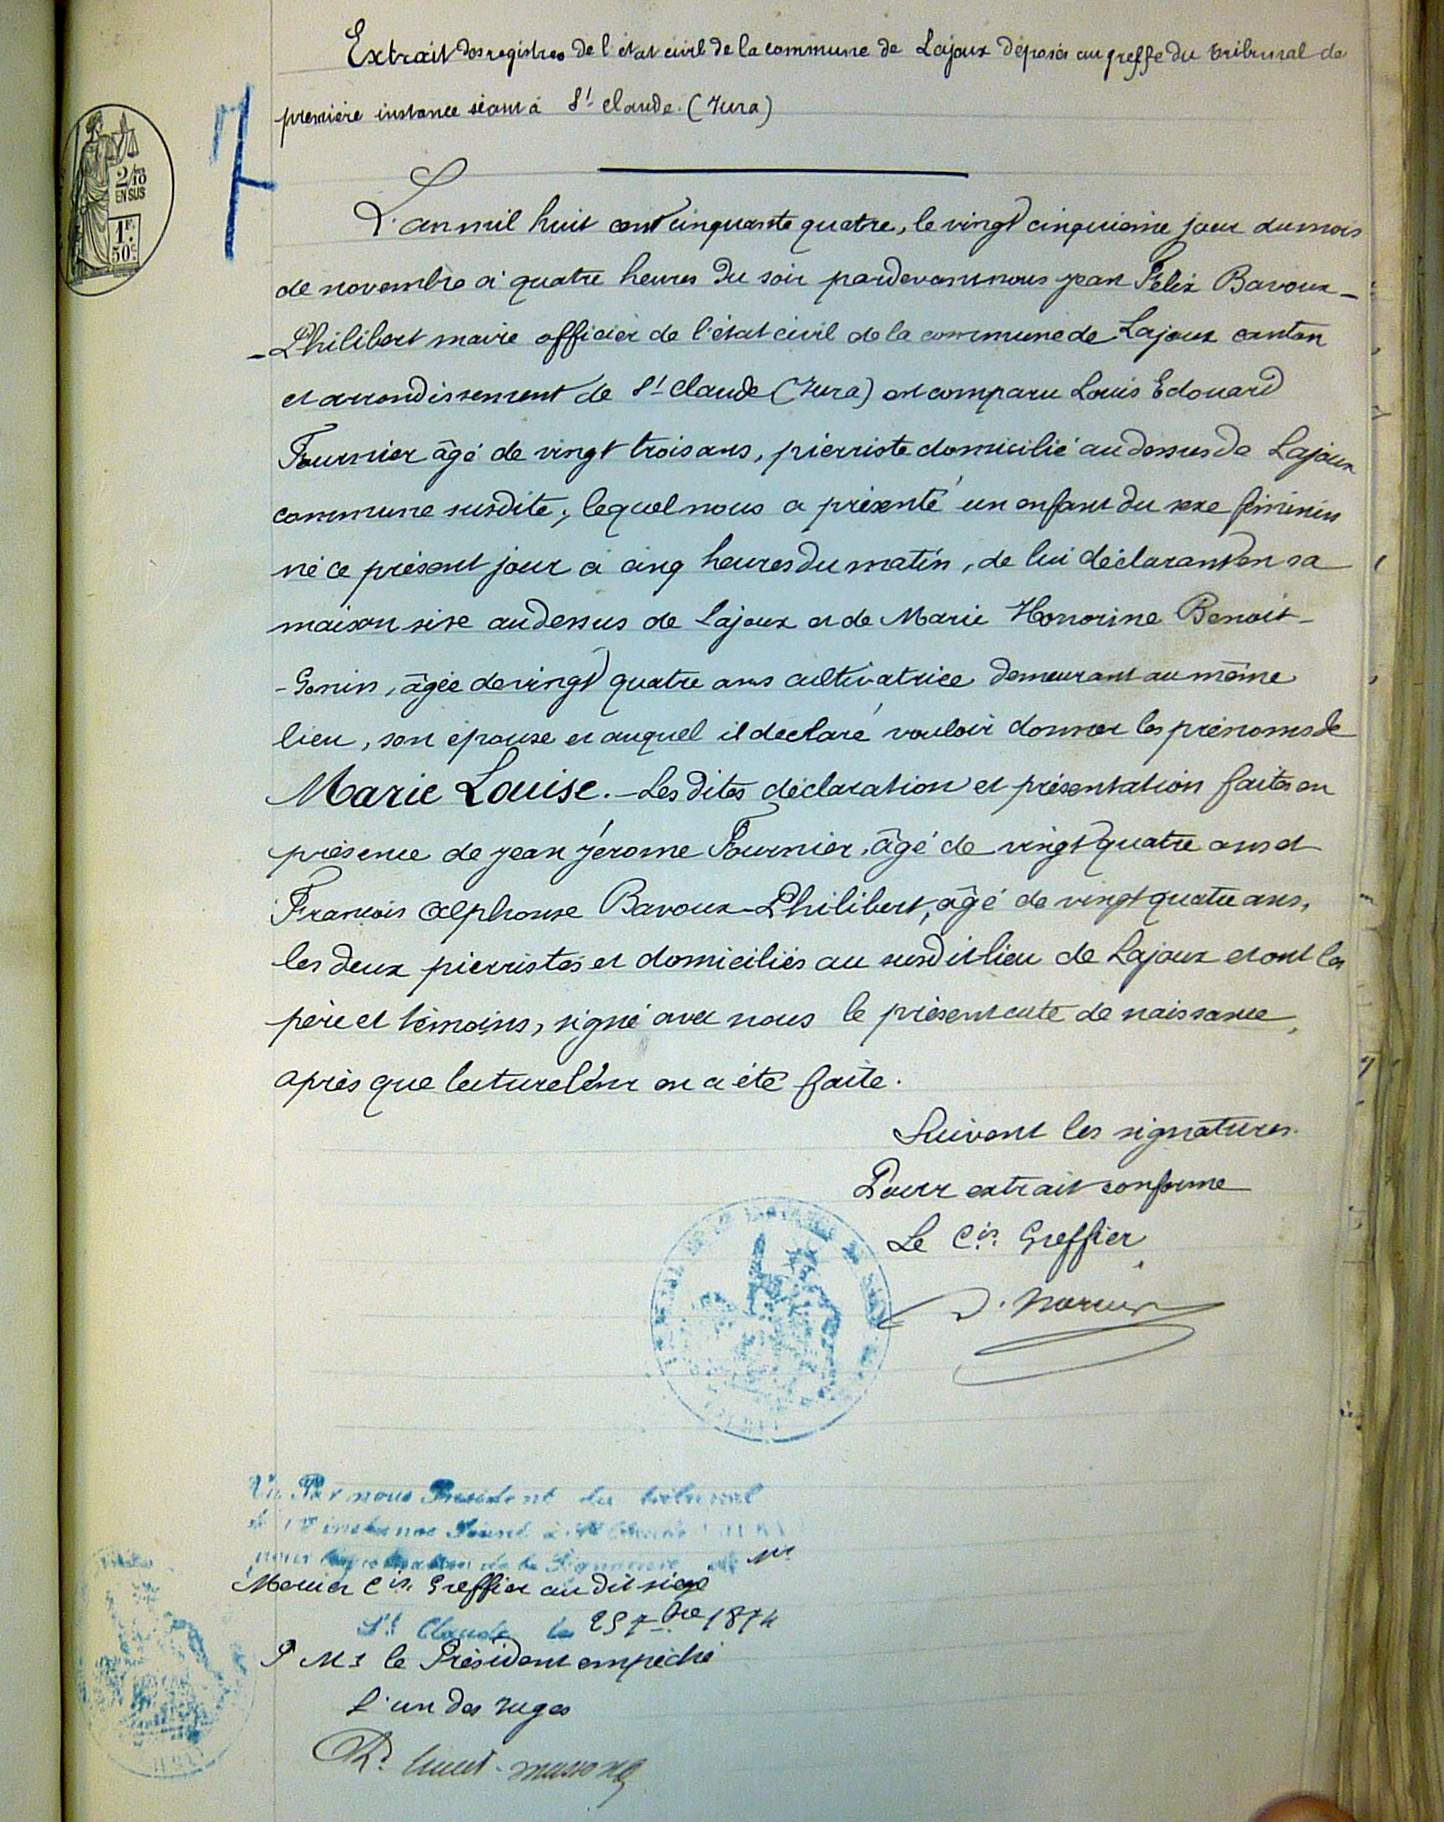 Extrait des registres de l'état civil de la commune de Lajoux déposés au greffe du tribunal de
première instance séant à St Claude. (Jura)
7
2/10 es
EN SUS
1F.
50c.
L'an mil huit cent cinquante quatre, le vingt cinquième jour du mois
de novembre à quatre heures du soir pardevant nous Jean Félix Bavoux-
-Philibert maire officier de l'état civil de la commune de Lajoux canton
et arrondissement de St Claude (Jura) est comparu Louis Edouard
Fournier âgé de vingt trois ans, pierriste domicilié au dessus de Lajoux
commune susdite, lequel nous a présenté un enfant du sexe féminin
né ce présent jour à cinq heures du matin, de lui déclarant en sa
maison sise au dessus de Lajoux et de Marie Honorine Benoit-
-Gonin, âgée de vingt quatre ans cultivatrice demeurant au même
lieu, son épouse et auquel il déclaré vouloir donner les prénoms de
Marie Louise. - Les dites déclaration et présentation faites en
présence de Jean Jérome Fournier, âgé de vingt quatre ans et
François Alphonse Bavoux-Philibert, âgé de vingt quatre ans,
les deux pierristes et domiciliés au susdit lieu de Lajoux et ont les
père et témoins, signé avec nous le présent acte de naissance,
après que lecture leur en a été faite.
Suivent les signatures.
Pour extrait conforme
Le Cis. Greffier
Vu Par nous Président du tribunal
de 1re instance Séant à St Claude (JURA)
pour légalisation de la Signature de Mr
Mercier Cis. Greffier au dit siège
St Claude le 25 7bre 1874
P Mr le Président empêché
L'un des Juges